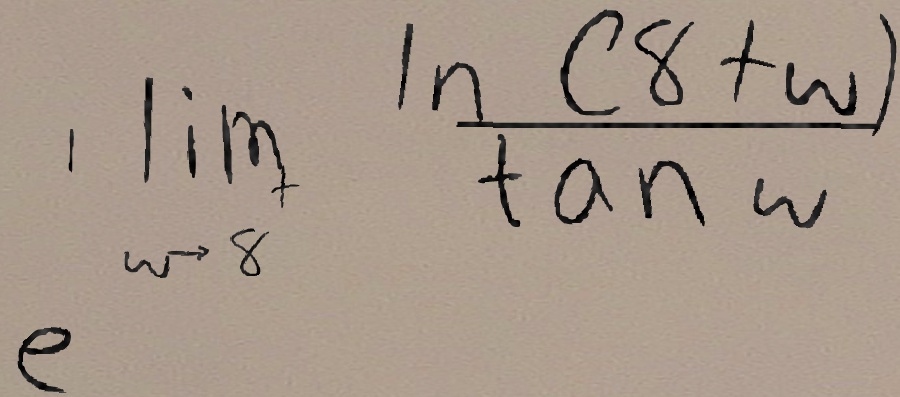 e^{1 \lim_{w \to 8^+} \frac{\ln (8 + w)}{\tan w}}